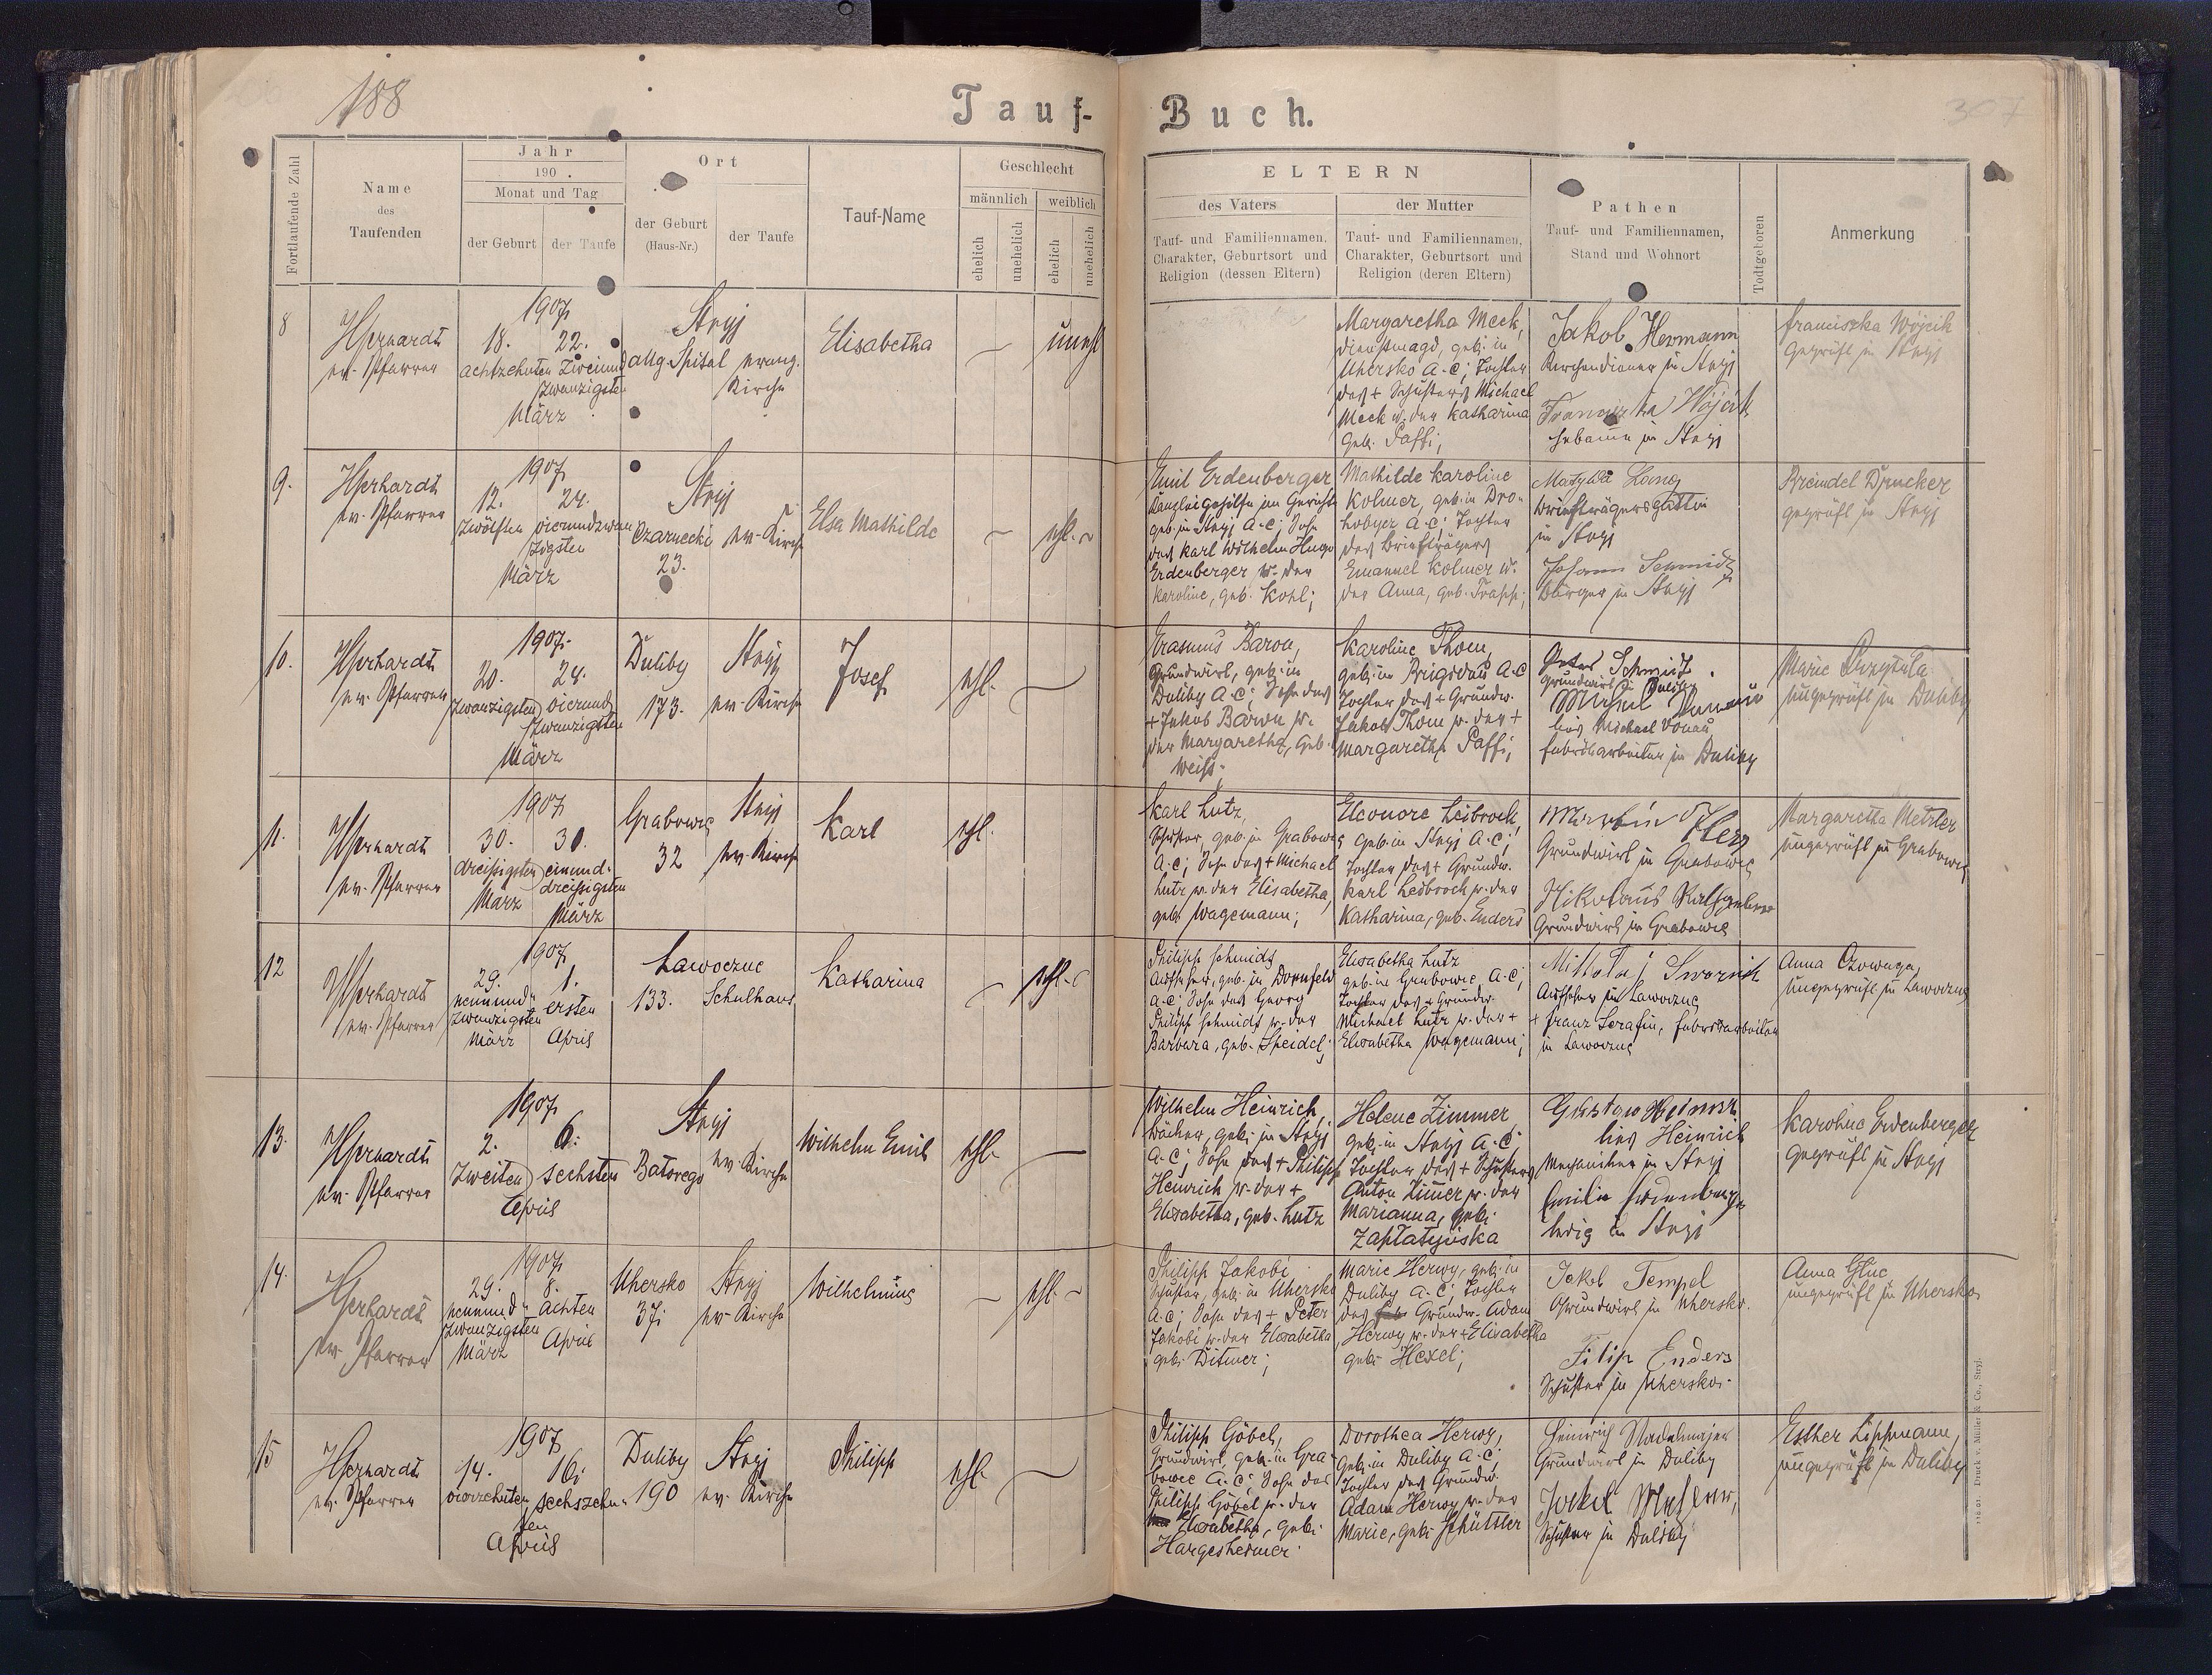 188
Tauf-Buch.
Fortlaufende Zahl
Name
des
Taufenden
Jahr
190 .
Monat und Tag
der Geburt
der Taufe
Ort
der Geburt
(Haus-Nr.)
der Taufe
Tauf-Name
Geschlecht
männlich
weiblich
ehelich
unehelich
ehelich
unehelich
ELTERN
des Vaters
Tauf- und Familiennamen,
Charakter, Geburtsort und
Religion (dessen Eltern)
der Mutter
Tauf- und Familiennamen,
Charakter, Geburtsort und
Religion (deren Eltern)
Pathen
Tauf- und Familiennamen,
Stand und Wohnort
Todtgeboren
Anmerkung
8
ev. Pfarrer
1907
18. 22.
achtzehnten Zweiund
zwanzigsten
März
Stryj
allg. Spital evang.
Kirche
Elisabetha
unehl
Margaretha Meck,
Dienstmagd, geb. in
Uhersko A.C; Tochter
des + Schusters Michael
Meck u. der Katharina
geb. Paffi;
Jakob Hermann
Kirchendiener in Stryj
Wójcik
Hebamme in Stryj
Franciszka Wójcik
geprüft in Stryj
9.
ev. Pfarrer
1907
12. 24.
Zwölften vierundzwan
zigsten
März
Stryj
Czarnecki ev. Kirche
23.
Elsa Mathilde
ehl.
Emil Erdenberger
Kanzleigehilfe am Gericht
geb. in Stryj A.C; Sohn
des Karl Wilhelm Hugo
Erdenberger u. der
Karoline, geb. Kohl;
Mathilde Karoline
Kolmer, geb. in Dro-
hobycz A.C; Tochter
des Briefträgers
Emanuel Kolmer u.
der Anna, geb. Trapp;
Matylda Lang
Briefträgersgattin
in Stryj
Johann Schmidt
Bürger in Stryj
Preindel Drucker
geprüft in Stryj
10.
ev. Pfarrer
1907
20. 24.
Zwanzigsten vierund
zwanzigsten
März
Duliby Stryj
173. ev. Kirche
Josef
ehl.
Erasmus Baron,
Grundwirt, geb. in
Duliby A.C; Sohn des
+ Jakob Baron u.
der Margaretha, geb.
Weiss;
Karoline Thom,
geb. in Brigidau A.C
Tochter des + Grundw.
Jakob Thom u. der +
Margaretha Paffi;
Peter Schmidt
Grundwirt in Duliby
lies Michael Donau
Fabriksarbeiter in Duliby
Marie
ungeprüft in Duliby
11.
ev. Pfarrer
1907
30. 31.
dreißigsten einund-
dreißigsten
März März
Grabowce Stryj
32 ev. Kirche
Karl
ehl.
Karl Lutz,
Schuster, geb. in Grabowce
A.C; Sohn des + Michael
Lutz u. der Elisabetha,
geb. Wagemann;
Eleonore Leibrock,
geb. in Stryj A.C;
Tochter des + Grundw.
Karl Leibrock u. der
Katharina, geb. Enders
Grundwirt in Grabowce
Grundwirt in Grabowce
Margaretha Metzler
ungeprüft in Grabowce
12
ev. Pfarrer
1907
29. 1.
neunund- ersten
zwanzigsten
März April
Lawoczne
133. Schulhaus
Katharina
ehl.
Philipp Schmidt
Aufseher, geb. in Dornfeld
A.C; Sohn des Georg
Philipp Schmidt u. der
Barbara, geb. Speidel;
Elisabetha Lutz
geb. in Grabowce A.C;
Tochter des + Grundw.
Michael Lutz u. der +
Elisabetha Wagemann;
Aufseher in Lawoczne
+ Franz Serafin, Fabriksarbeiter
in Lawoczne
Anna Czowaga,
ungeprüft in Lawoczne
13.
ev. Pfarrer
1907
2. 6.
Zweiten sechsten
April
Stryj
Batorego ev. Kirche
Wilhelm Emil
ehl.
Wilhelm Heinrich,
Bäcker, geb. in Stryj
A.C; Sohn des + Philipp
Heinrich u. der +
Elisabetha, geb. Lutz
Helene Zimmer
geb. in Stryj A.C
Tochter des + Schusters
Anton Zimmer u. der
Marianna, geb.
Gustaw
lies Heinrich
Mechaniker in Stryj
ledig in Stryj
Karoline Erdenberger
geprüft in Stryj
14.
ev. Pfarrer
1907
29. 8.
neunund- achten
zwanzigsten
März April
Uhersko Stryj
37. ev. Kirche
Wilhelmine
ehl.
Philipp Jakobi
Schuster, geb. in Uhersko
A.C; Sohn des + Peter
Jakobi u. der Elisabetha
geb. Ditmer;
Marie Herwy, geb. in
Duliby A.C; Tochter
des Grundw. Adam
Herwy u. der + Elisabetha
geb. Hexel;
Jakob Tempel
Grundwirt in Uhersko.
Filip Enders
Schuster in Uhersko.
Anna Gluc
ungeprüft in Uhersko
15
ev. Pfarrer
1907
14. 16.
vierzehnten sechszehn-
ten
April
Duliby Stryj
190 ev. Kirche
Philipp
ehl.
Philipp Göbel,
Grundwirt, geb. in Gra-
bowce A.C; Sohn des
Philipp Göbel u. der
Elisabetha, geb.
Hargesheimer
Dorothea Herwy,
geb. in Duliby A.C;
Tochter des Grundw.
Adam Herwy u. der
Marie, geb. Schüttler
Heinrich
Grundwirt in Duliby
Schuster in Duliby
Esther Lippmann,
ungeprüft in Duliby
Druck v. Müller & Co., Stryj.